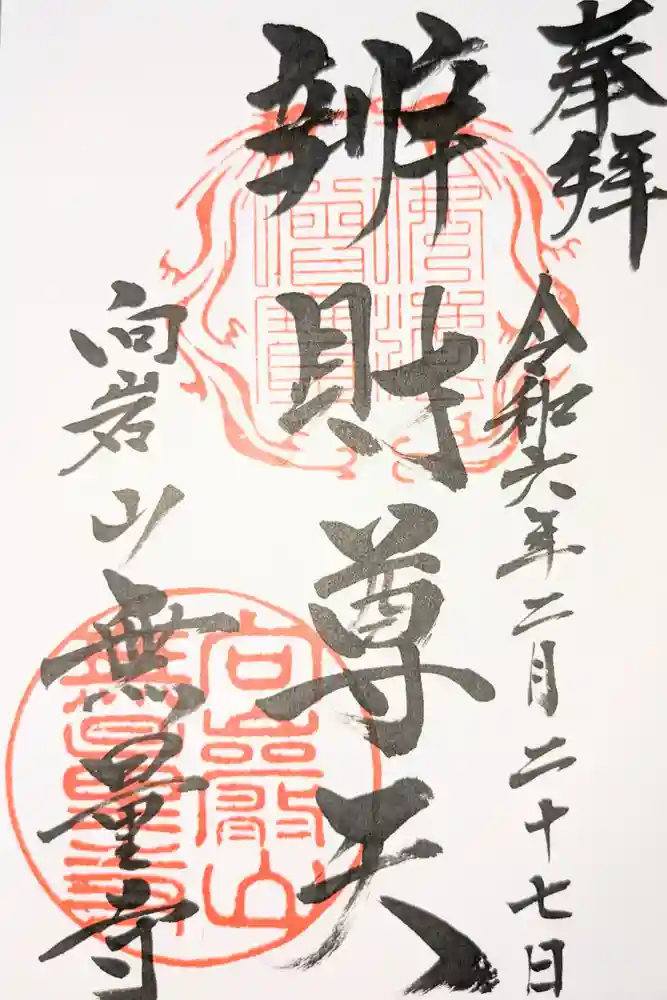 奉拝
令和六年二月二十七日
辨財尊天
向岩山無量寺
向巖山
無量寿寺